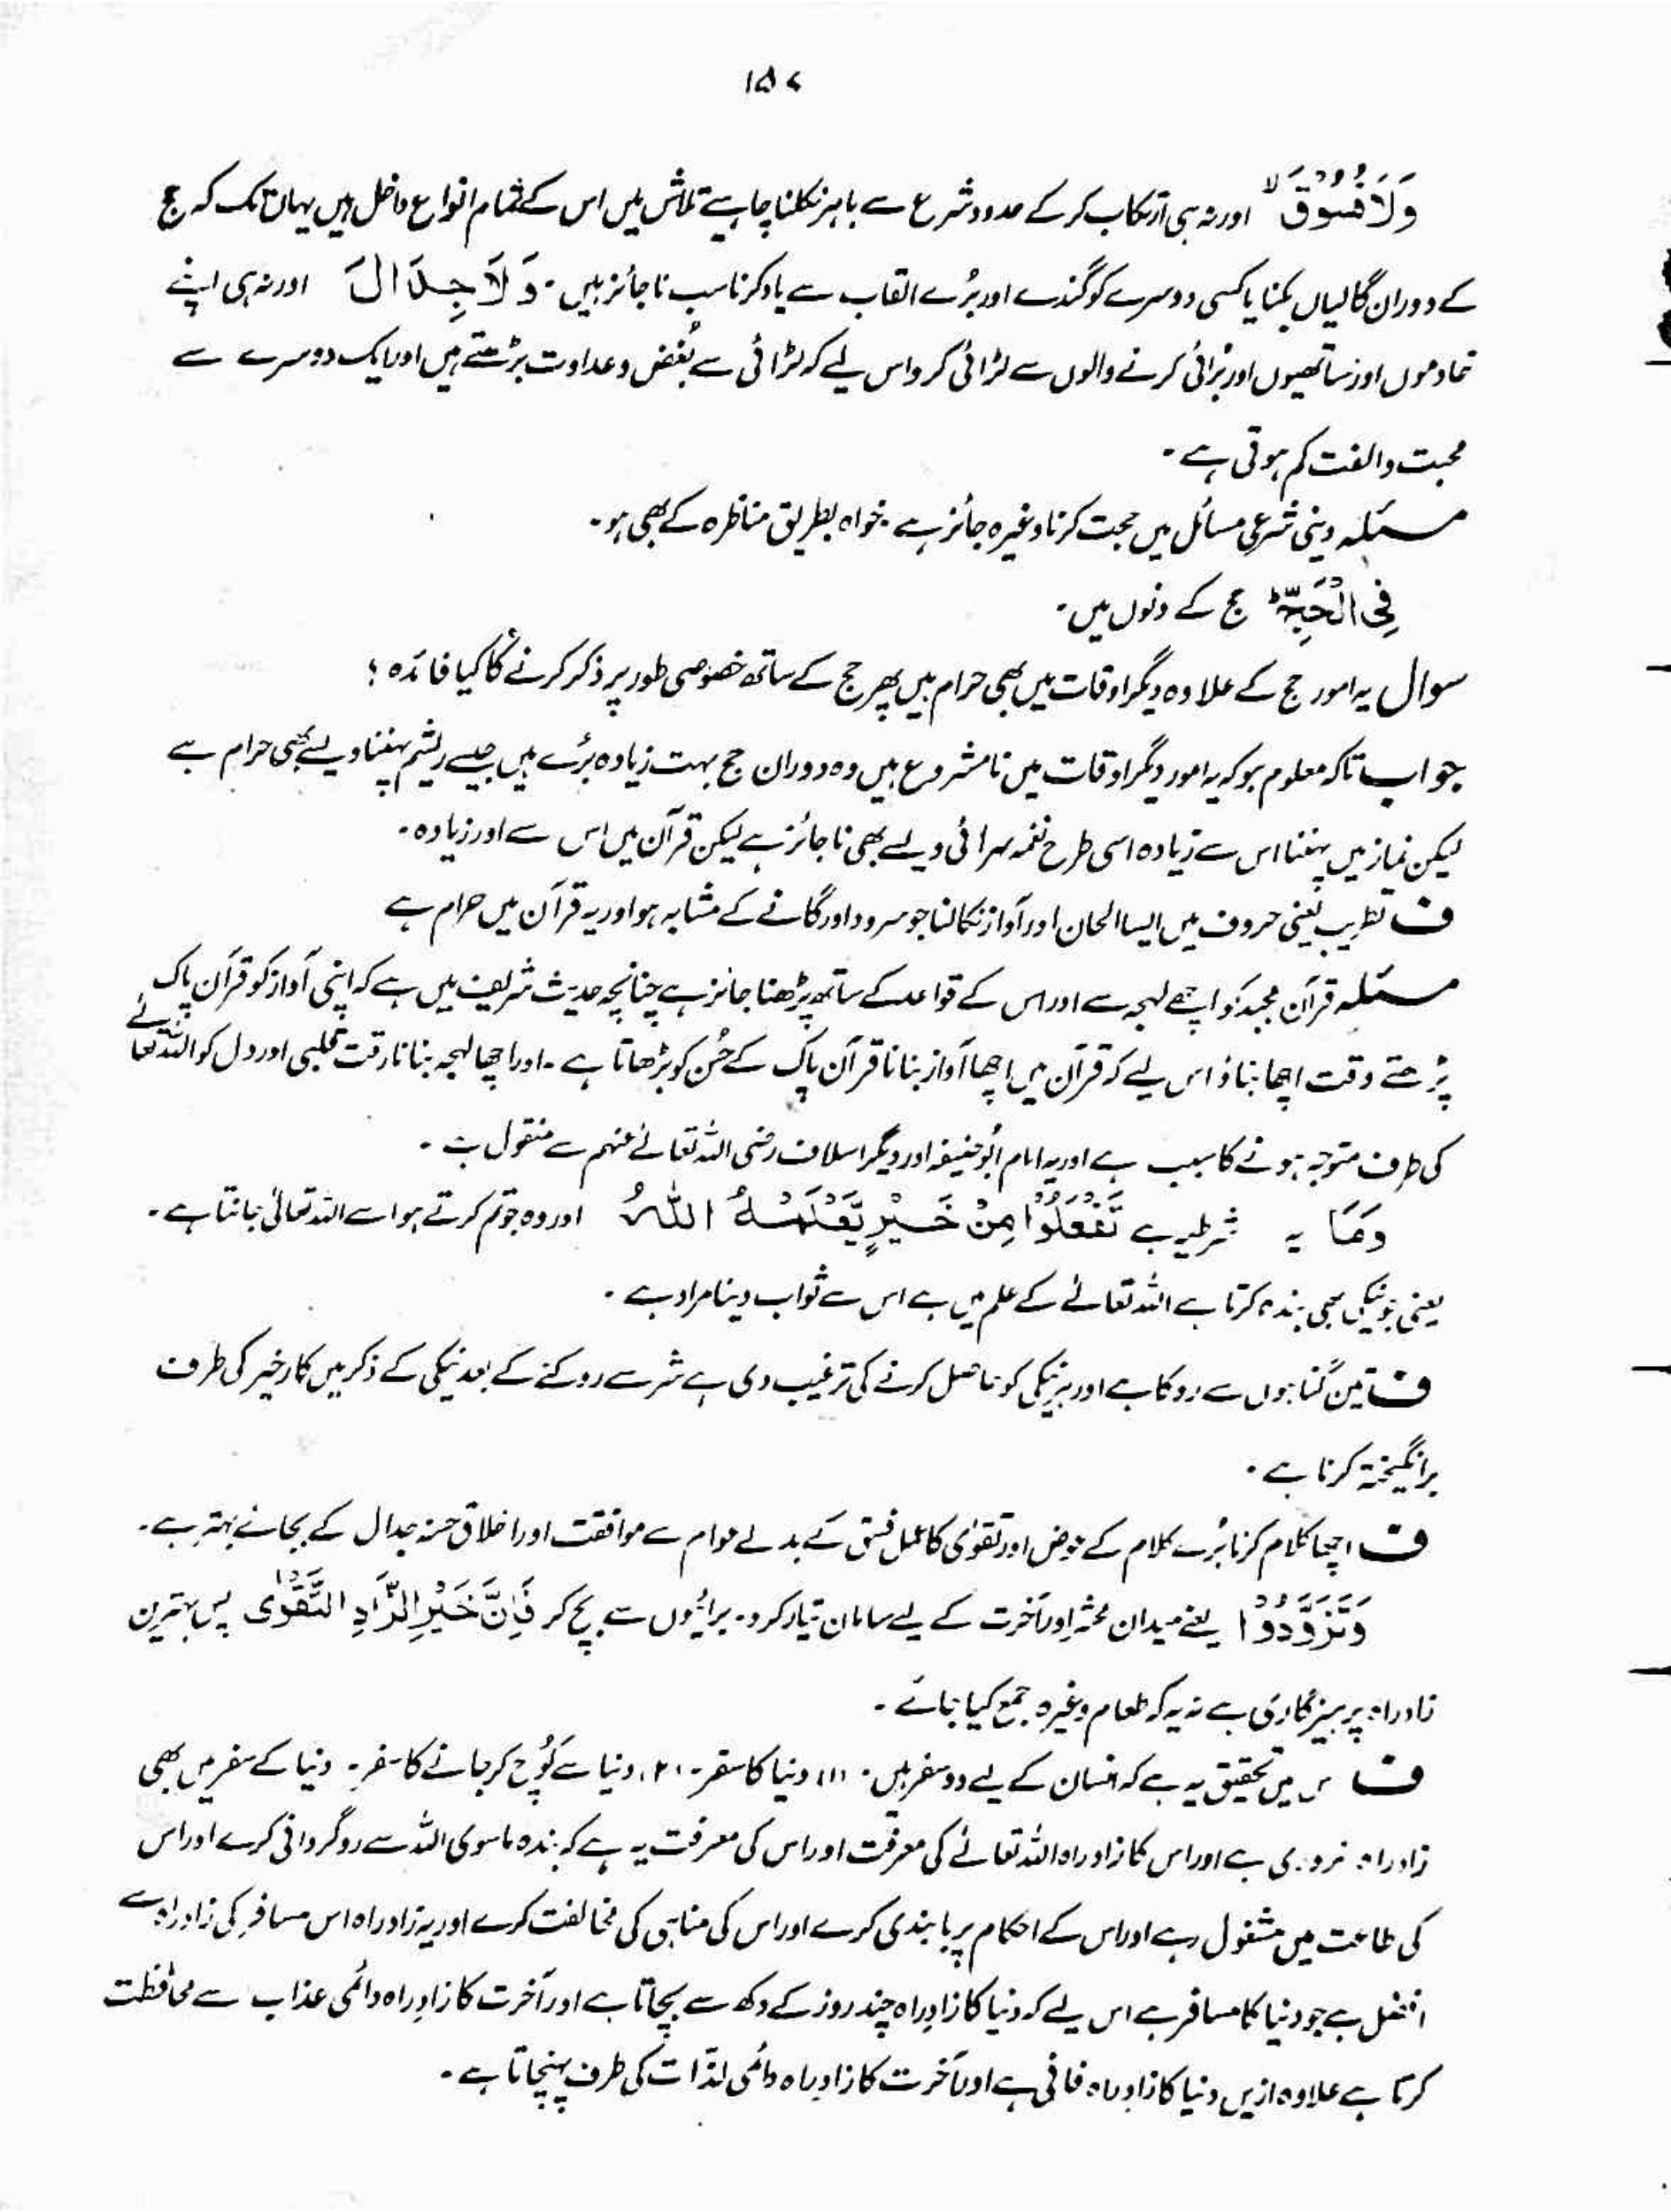 ۱۵۷
وَلَا فُسُوْقَ ۙ اور نہ ہی ارتکاب کر کے حدود شرع سے باہر نکلنا چاہیے تلاش میں اس کے تمام انواع داخل ہیں یہاں تک کہ حج
کے دوران گالیاں بکنا یا کسی دوسرے کو گندے اور بُرے القاب سے یاد کرنا سب ناجائز ہیں۔ وَلَا جِدَالَ اور نہ ہی اپنے
خادموں اور ساتھیوں اور بُرائی کرنے والوں سے لڑائی کرو اس لیے کہ لڑائی سے بُغض و عداوت بڑھتے ہیں اور ایک دوسرے سے
محبت و الفت کم ہوتی ہے۔
مسئلہ دینی شرعی مسائل میں حجت کرنا وغیرہ جائز ہے۔ خواہ بطریق مناظرہ کے بھی ہو۔
فِی الْحَجِّ ؕ حج کے دنوں میں۔
سوال یہ امور حج کے علاوہ دیگر اوقات میں بھی حرام ہیں پھر حج کے ساتھ خصوصی طور پر ذکر کرنے کا کیا فائدہ ؟
جواب تاکہ معلوم ہو کہ یہ امور دیگر اوقات میں نامشروع ہیں وہ دوران حج بہت زیادہ بُرے ہیں جیسے ریشم پہننا ویسے بھی حرام ہے
لیکن نماز میں پہننا اس سے زیادہ اسی طرح نغمہ سرائی ویسے بھی ناجائز ہے لیکن قرآن میں اس سے اور زیادہ۔
ف تطریب یعنی حروف میں ایسا الحان اور آواز نکالنا جو سرود اور گانے کے مشابہ ہو اور یہ قرآن میں حرام ہے
مسئلہ قرآن مجید کو اچھے لہجہ سے اور اس کے قواعد کے ساتھ پڑھنا جائز ہے چنانچہ حدیث شریف میں ہے کہ اپنی آواز کو قرآن پاک
پڑھتے وقت اچھا بناؤ اس لیے کہ قرآن میں اچھا آواز بنانا قرآن پاک کے حُسن کو بڑھاتا ہے۔ اور اچھا لہجہ بنانا رقت قلبی اور دل کو اللہ تعالےٰ
کی طرف متوجہ ہونے کا سبب ہے اور یہ امام ابُوحنیفہ اور دیگر اسلاف رضی اللہ تعالےٰ عنہم سے منقول ہے۔
وَمَا یہ شرطیہ ہے تَفْعَلُوْا مِنْ خَیْرٍ یَّعْلَمْہُ اللّٰہُ اور وہ جو تم کرتے ہو اسے اللہ تعالیٰ جانتا ہے۔
یعنی جو نیکی بھی بندہ کرتا ہے اللہ تعالےٰ کے علم میں ہے اس سے ثواب دینا مراد ہے۔
ف تین گناہوں سے روکا ہے اور ہر نیکی کو حاصل کرنے کی ترغیب دی ہے شر سے روکنے کے بعد نیکی کے ذکر میں کارِ خیر کی طرف
برانگیختہ کرنا ہے۔
ف اچھا کلام کرنا بُرے کلام کے عوض اور تقویٰ کا عمل فسق کے بدلے عوام سے موافقت اور اخلاق حسنہ جدال کے بجائے بہتر ہے۔
وَتَزَوَّدُوْا یعنے میدان محشر اور آخرت کے لیے سامان تیار کرو۔ برائیوں سے بچ کر فَاِنَّ خَیْرَ الزَّادِ التَّقْوٰی پس بہترین
زادراہ پرہیزگاری ہے نہ یہ کہ طعام وغیرہ جمع کیا جائے۔
ف اس میں تحقیق یہ ہے کہ انسان کے لیے دو سفر ہیں۔ (۱) دنیا کا سفر۔ (۲) دنیا سے کُوچ کر جانے کا سفر۔ دنیا کے سفر میں بھی
زادراہ ضروری ہے اور اس کا زادراہ اللہ تعالےٰ کی معرفت اور اس کی معرفت یہ ہے کہ بندہ ماسوی اللہ سے روگردانی کرے اور اس
کی طاعت میں مشغول رہے اور اس کے احکام پر پابندی کرے اور اس کی مناہی کی مخالفت کرے اور یہ زادراہ اس مسافر کی زادراہ سے
افضل ہے جو دنیا کا مسافر ہے اس لیے کہ دنیا کا زادِراہ چند روز کے دکھ سے بچاتا ہے اور آخرت کا زادِراہ دائمی عذاب سے محافظت
کرتا ہے علاوہ ازیں دنیا کا زادِراہ فانی ہے اور آخرت کا زادِراہ دائمی لذّات کی طرف پہنچاتا ہے۔